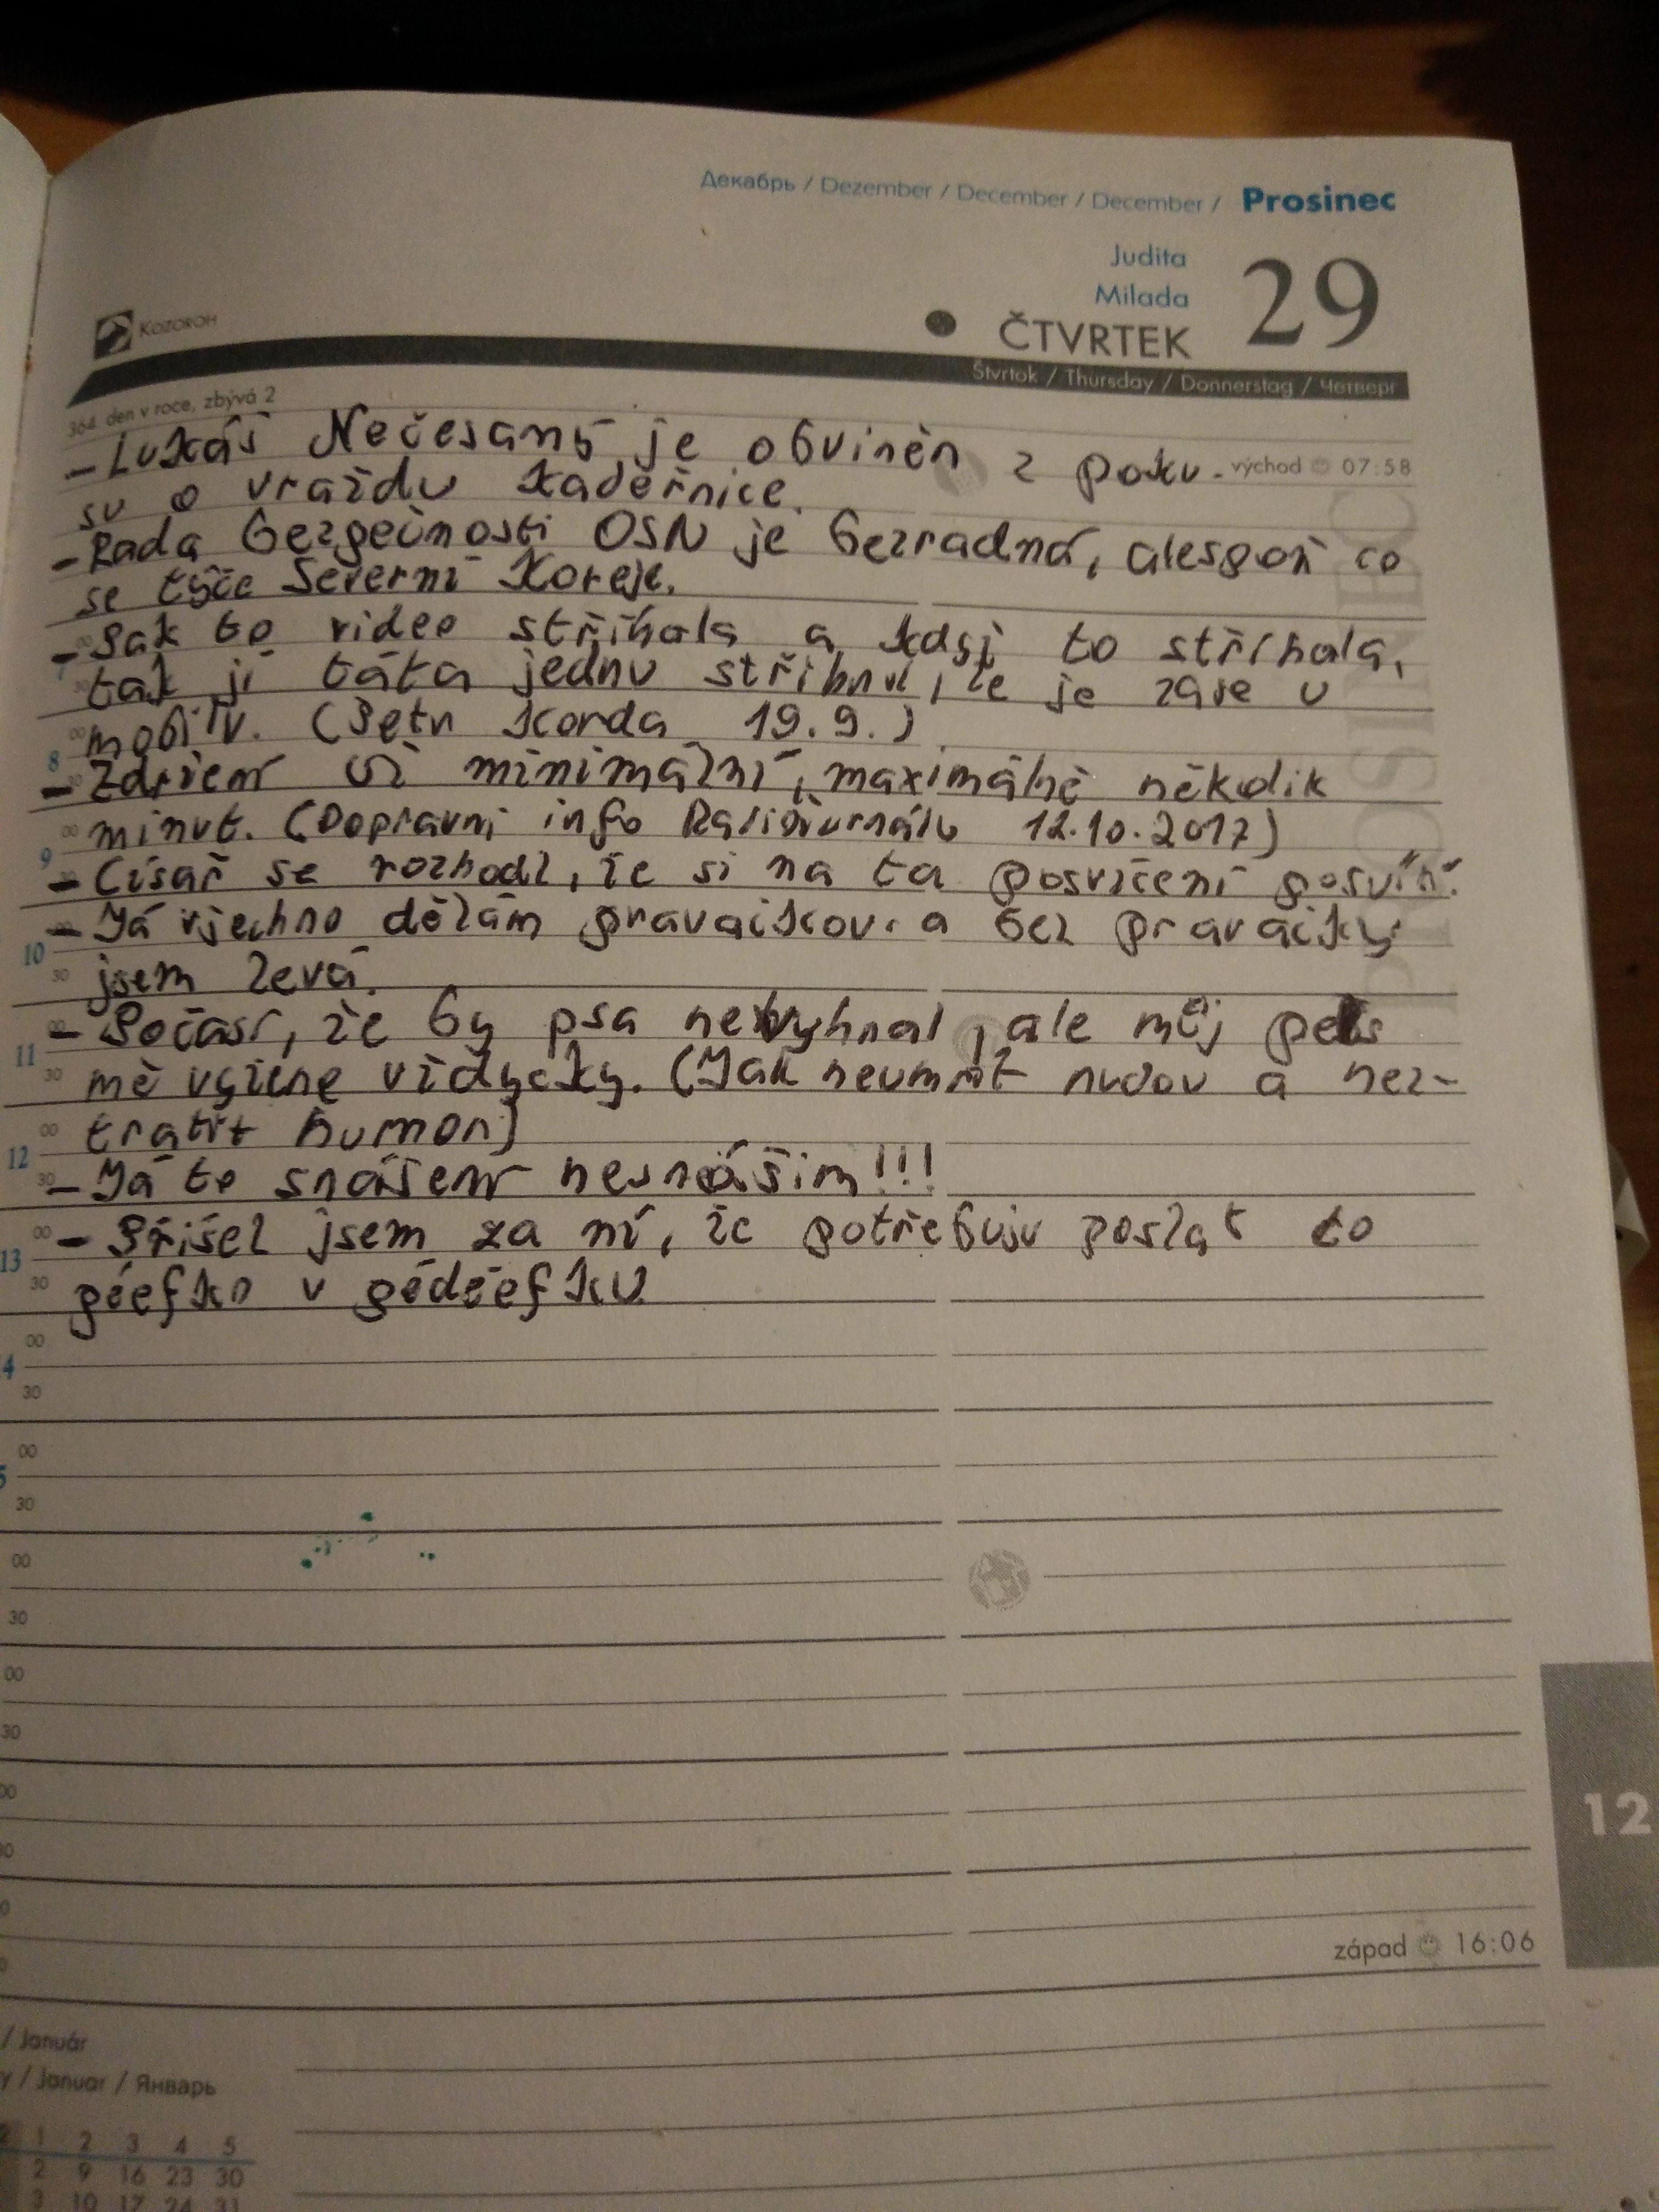 Декабрь / Dezember / December / December / Prosinec
Judita
Milada
29
ČTVRTEK
Kozoroh
Štvrtok / Thursday / Donnerstag / Четверг
364. den v roce, zbývá 2
východ 07:58
- Lukáš Nečesaný je obviněn z poku-
su o vraždu kadeřnice.
- Rada bezpečnosti OSN je bezradná, alespoň co
se týče Severní Koreje.
- Pak to video stříhala a když to stříhala,
tak jí táta jednu střihnul, že je zase u
mobilu. (Petr Korda 19.9.)
- Zdržení už minimální, maximálně několik
minut. (Dopravní info Radiožurnálu 12.10.2017)
- Císař se rozhodl, že si na ta posvícení posvítí.
- Já všechno dělám pravačkou a bez pravačky
jsem levá.
- Počasí, že by psa nevyhnal, ale můj pes
mě vyžene vždycky. (Jak neumřít nudou a nez-
tratit humor)
- Já to snášení nesnáším!!!
- Přišel jsem za ní, že potřebuju poslat to
péefko v pédéefku
PROSINEC
8
9
10
11
12
13
12
západ 16:06
/ Január
y / Januar / Январь
1 2 3 4 5
2 9 16 23 30
3 10 17 24 31